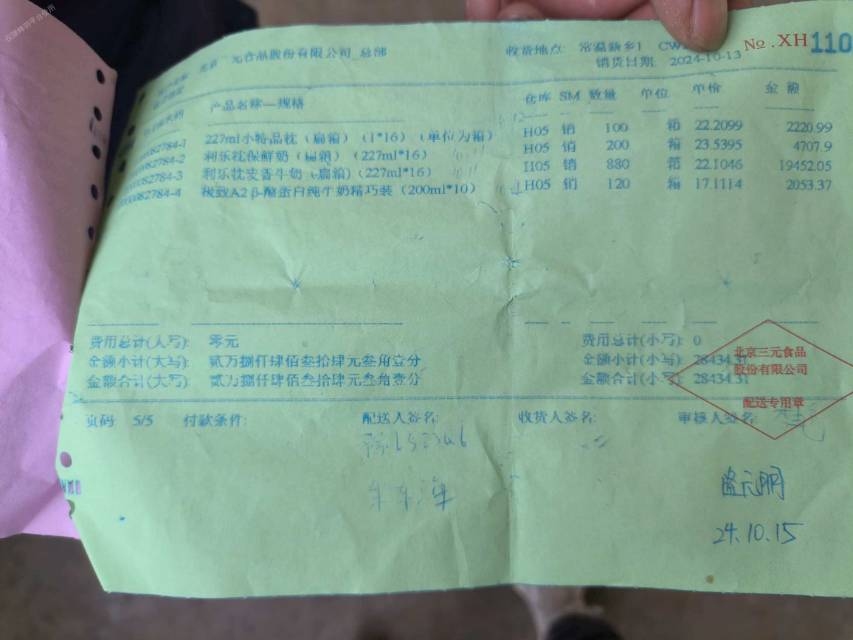 元食品股份有限公司 总部
收货地点: 常温新乡1
№.XH110
销货日期: 2024-10-13
产品名称—规格 仓库 SM 数量 单位 单价 金额
82784-1 227ml小特晶枕（扁箱）（1*16）（单位为箱） H05 销 100 箱 22.2099 2220.99
82784-2 利乐枕保鲜奶（扁箱）（227ml*16） H05 销 200 箱 23.5395 4707.9
82784-3 利乐枕麦香牛奶（扁箱）（227ml*16） H05 销 880 箱 22.1046 19452.05
82784-4 极致A2 β-酪蛋白纯牛奶精巧装（200ml*10） H05 销 120 箱 17.1114 2053.37
费用总计(大写): 零元 费用总计(小写): 0
金额小计(大写): 贰万捌仟肆佰叁拾肆元叁角壹分 金额小计(小写): 28434.31
金额合计(大写): 贰万捌仟肆佰叁拾肆元叁角壹分 金额合计(小写): 28434.31
北京三元食品
股份有限公司
配送专用章
页码: 5/5 付款条件: 配送人签名: 收货人签名: 审核人签名:
24.10.15